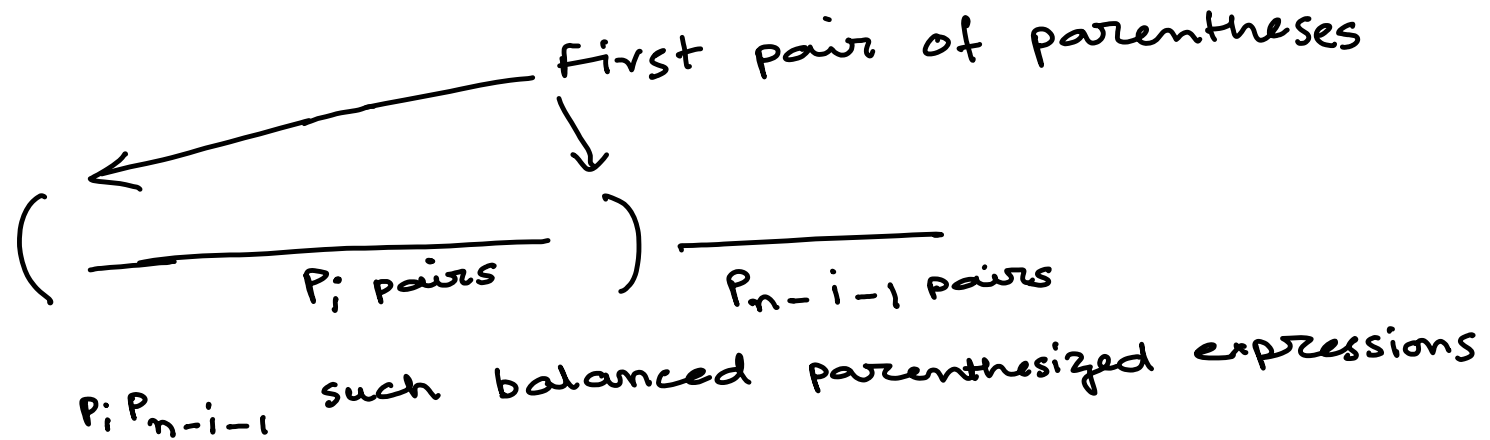 First pair of parentheses
( ) 
P_i pairs P_{n-i-1} pairs
P_i P_{n-i-1} such balanced parenthesized expressions